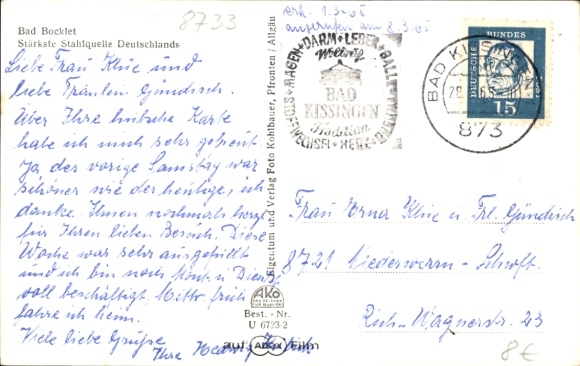 8733
Bad Bocklet
Stärkste Stahlquelle Deutschlands
Liebe Frau Klüe und
liebe Fräulein Gündisch.
Über Ihre hübsche Karte
habe ich mich sehr gefreut.
Ja, der vorige Samstag war
schöner wie der heutige, ich
danke Ihnen nochmals herzl.
für Ihren lieben Besuch. Diese
Woche war sehr ausgefüllt
und ich bin noch Mont. u Dienst.
voll beschäftigt. Mittw. früh
fahre ich heim.
Viele liebe Grüße
Ihre Hedwig
Eigentum und Verlag Foto Kohlbauer, Pfronten / Allgäu
AKO
Best. - Nr.
U 6723-2
auf ADOX Film
erh. 1.3.65
angerufen am 2.3.65
MAGEN + DARM + LEBER + GALLE
STOFFWECHSEL + HERZ
BAD
KISSINGEN
Tradition
BAD KISSINGEN
873
DEUTSCHE BUNDESPOST
15
Frau Erna Klüe u. Frl. Gündisch
8721 Niederwerrn-Schweinft.
Rich.-Wagnerstr. 23
8€